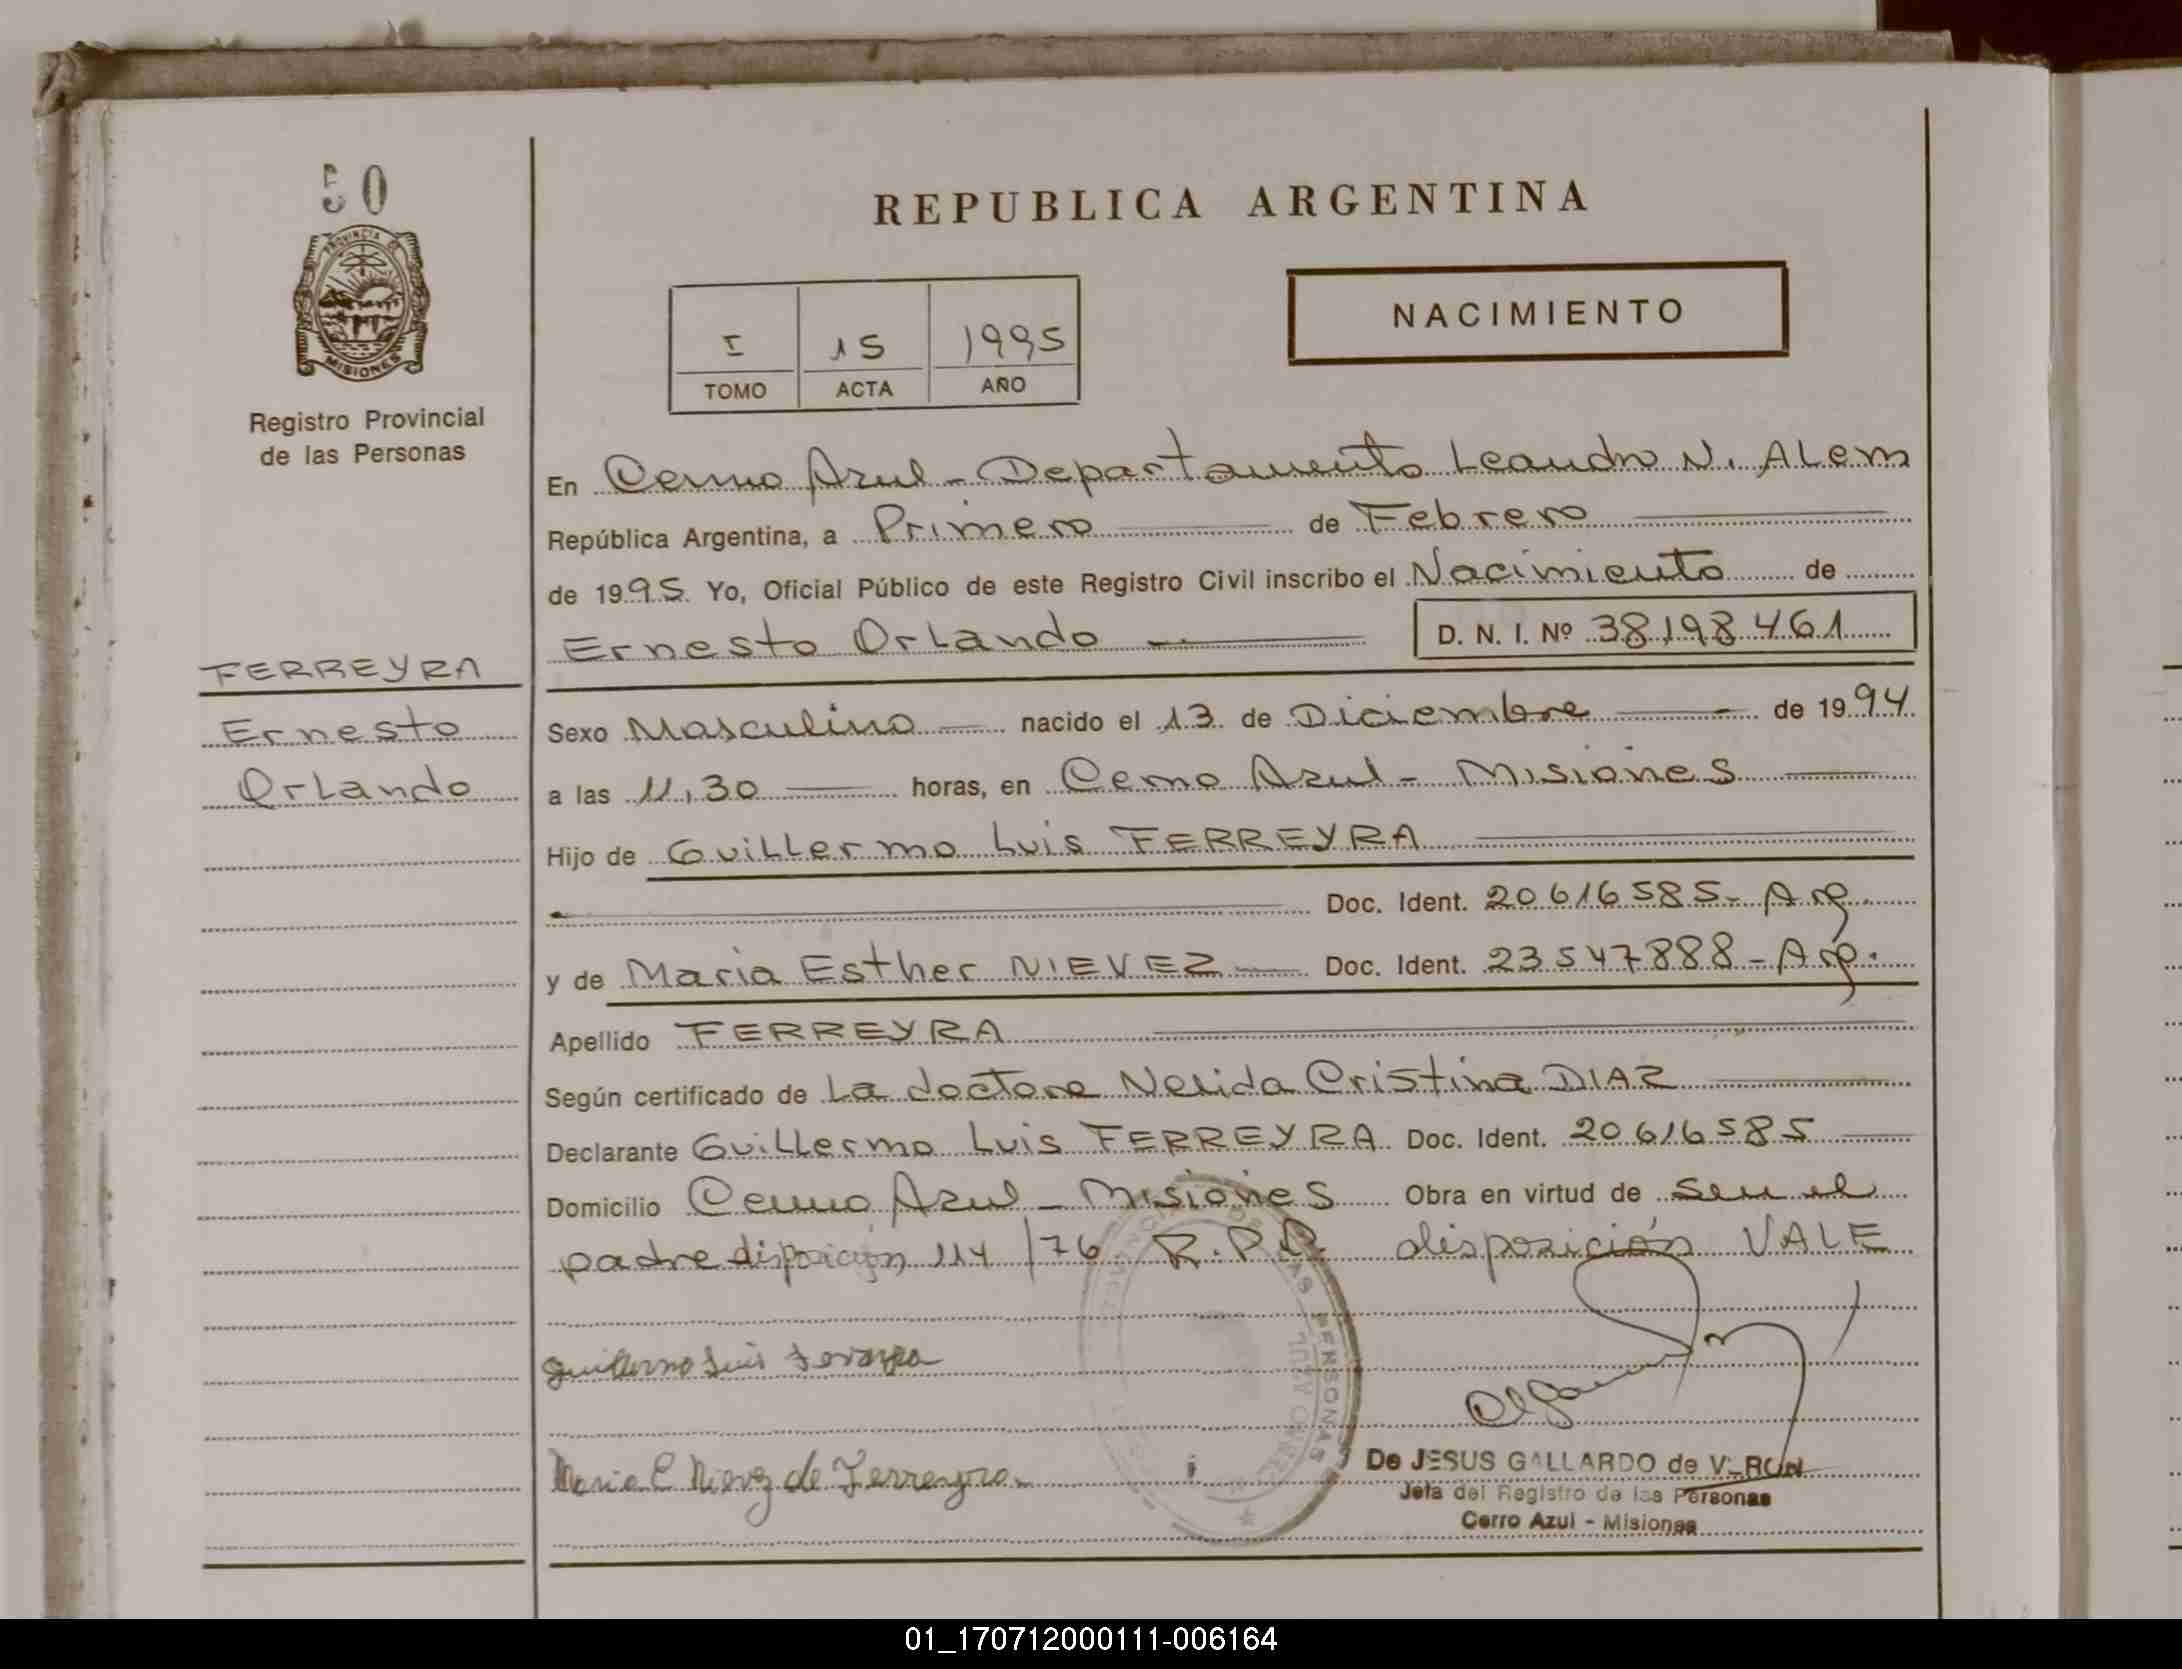 50
PROVINCIA DE
MISIONES
Registro Provincial
de las Personas
FERREYRA
Ernesto
Orlando
REPUBLICA ARGENTINA
NACIMIENTO
I 15 1995
TOMO ACTA AÑO
En Cerro Azul - Departamento Leandro N. ALem
República Argentina, a Primero de Febrero
de 1995 Yo, Oficial Público de este Registro Civil inscribo el Nacimiento de
Ernesto Orlando D. N. I. Nº 38198461
Sexo Masculino nacido el 13 de Diciembre de 1994
a las 11,30 horas, en Cerro Azul - Misiones
Hijo de Guillermo Luis FERREYRA
Doc. Ident. 20616585- Arg.
y de Maria Esther NIEVEZ Doc. Ident. 23547888 - Arg.
Apellido FERREYRA
Según certificado de La doctora Nelida Cristina DIAZ
Declarante Guillermo Luis FERREYRA Doc. Ident. 20616585
Domicilio Cerro Azul - Misiones Obra en virtud de ser el
padre disposición 114/76 R.P.P. disposición VALE
Guillermo Luis Ferreyra
Maria E Nievez de Ferreyra
De JESUS GALLARDO de V
Jefa del Registro de las Personas
Cerro Azul - Misiones
01_170712000111-006164